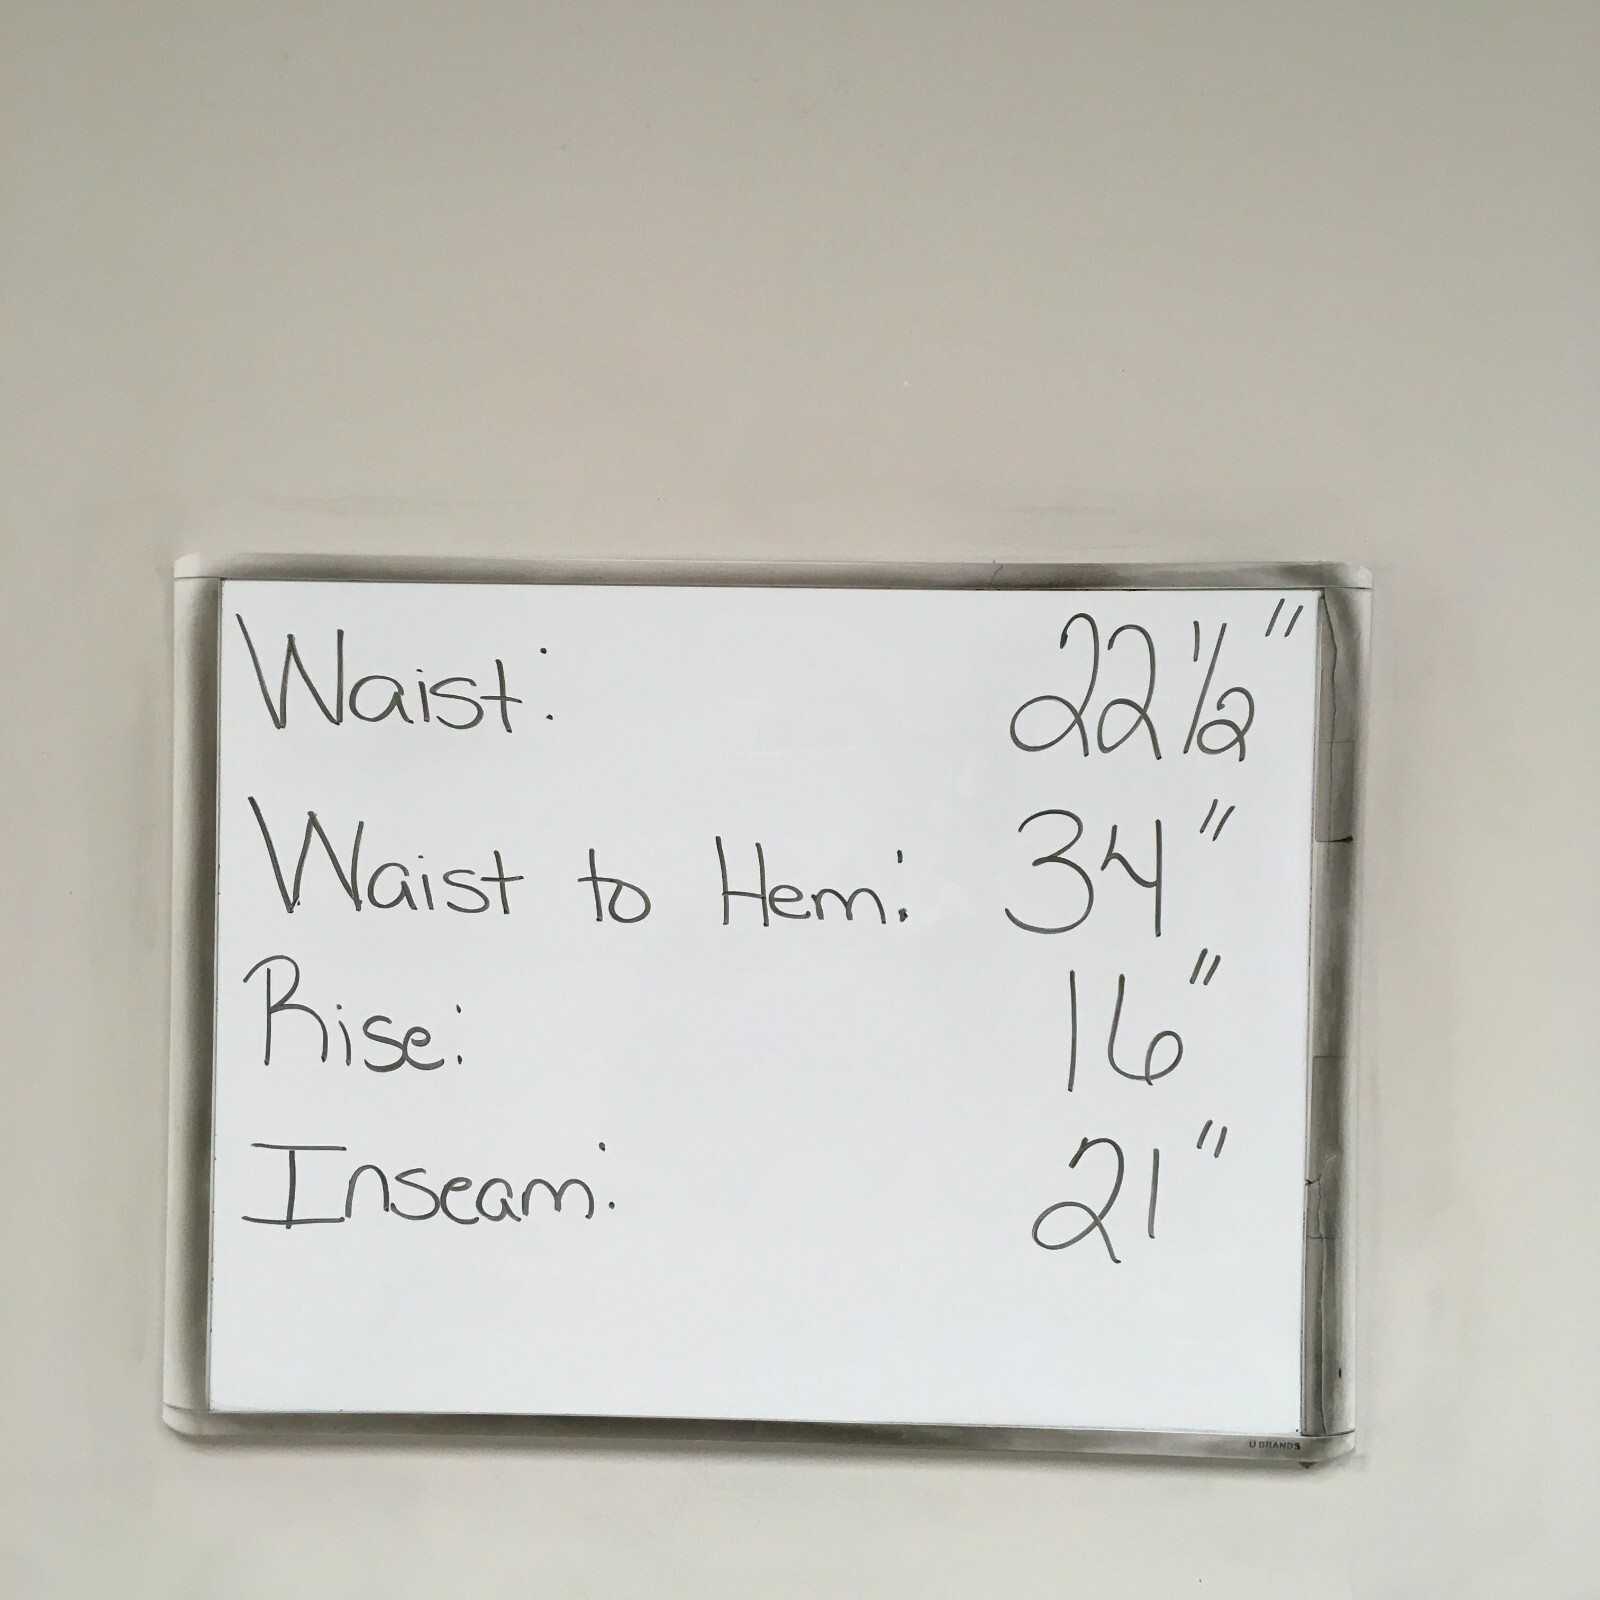 Waist: 22 1/2"
Waist to Hem: 34"
Rise: 16"
Inseam: 21"
U BRANDS